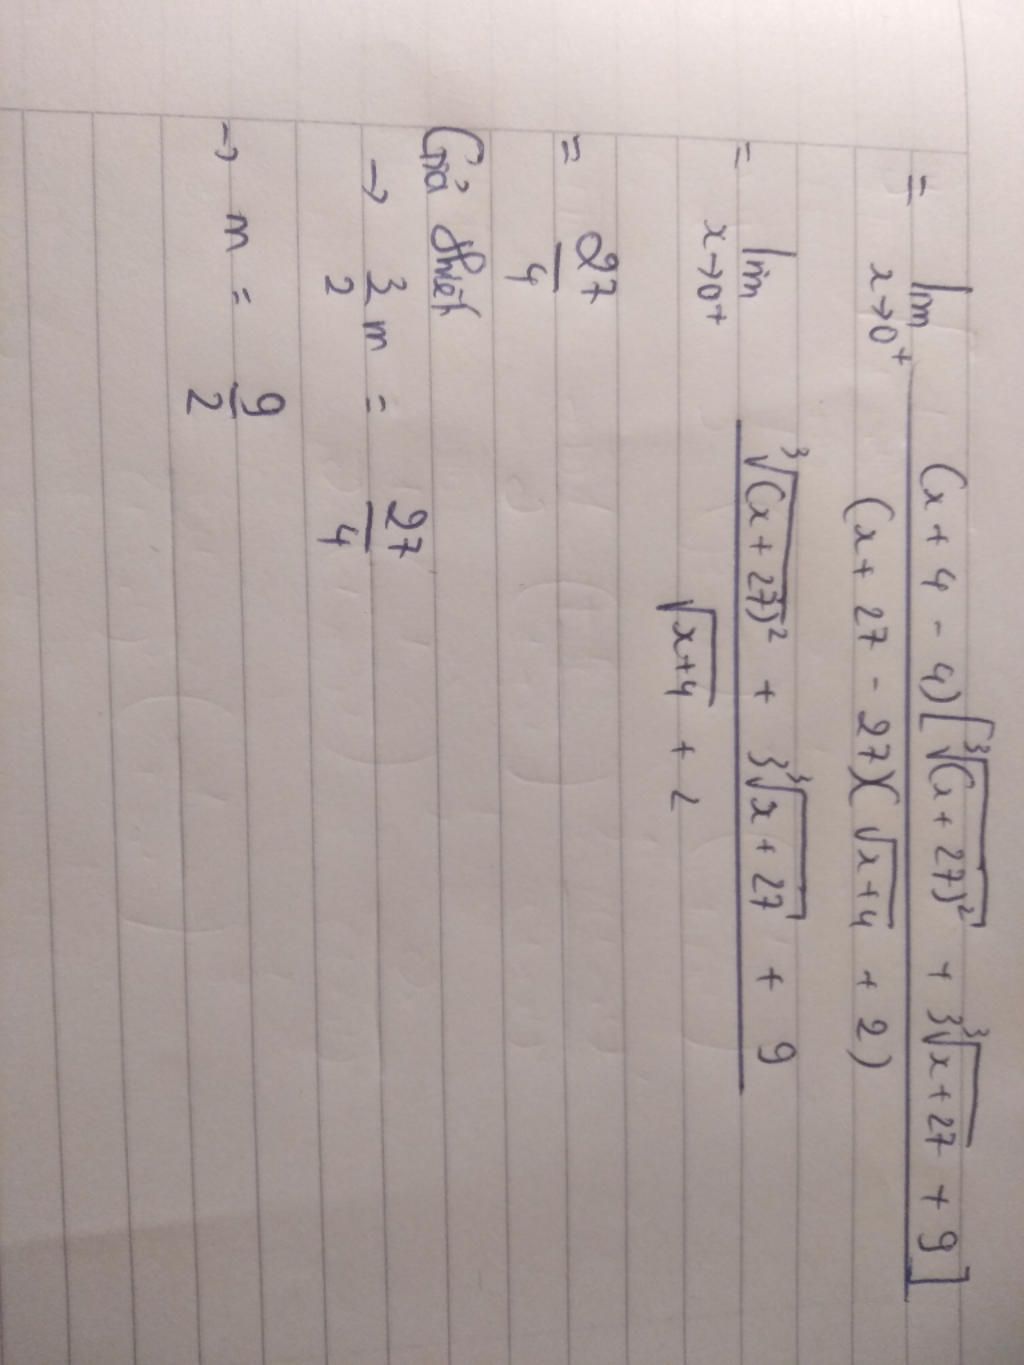 = lim x→0⁺ (x + 4 - 4)[∛(x + 27)² + 3∛x + 27 + 9] / (x + 27 - 27)(√x+4 + 2)
= lim x→0⁺ ∛(x + 27)² + 3∛x + 27 + 9 / √x+4 + 2
= 27/4
Giả thiết
→ 3/2 m = 27/4
→ m = 9/2